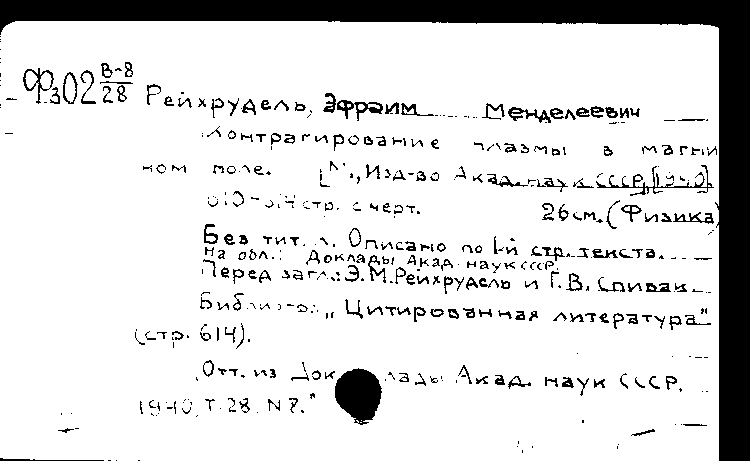 Фз02 В-8/28
Рейхрудель, Эфраим Менделеевич
Контрагирование плазмы в магнит
ном поле. [М., Изд-во Акад. наук СССР, [1940].
610-614 стр. с черт. 26 см. (Физика)
Без тит. л. Описано по 1-й стр. текста.
На обл.: Доклады Акад. наук СССР.
Перед загл.: Э.М.Рейхрудель и Г.В. Спивак
Библиогр.: „Цитированная литература"
(стр. 614).
„Отт. из Докладов Акад. наук СССР.
1940, Т. 28. N 7."